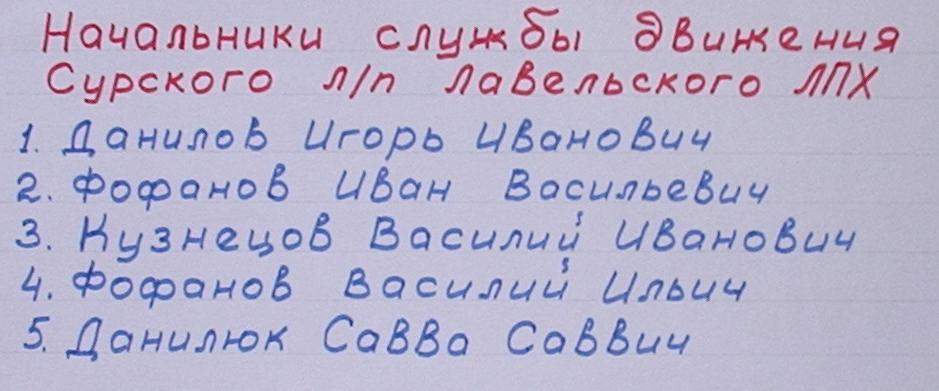 Начальники службы движения
Сурского л/п Лавельского ЛПХ
1. Данилов Игорь Иванович
2. Фофанов Иван Васильевич
3. Кузнецов Василий Иванович
4. Фофанов Василий Ильич
5. Данилюк Савва Саввич